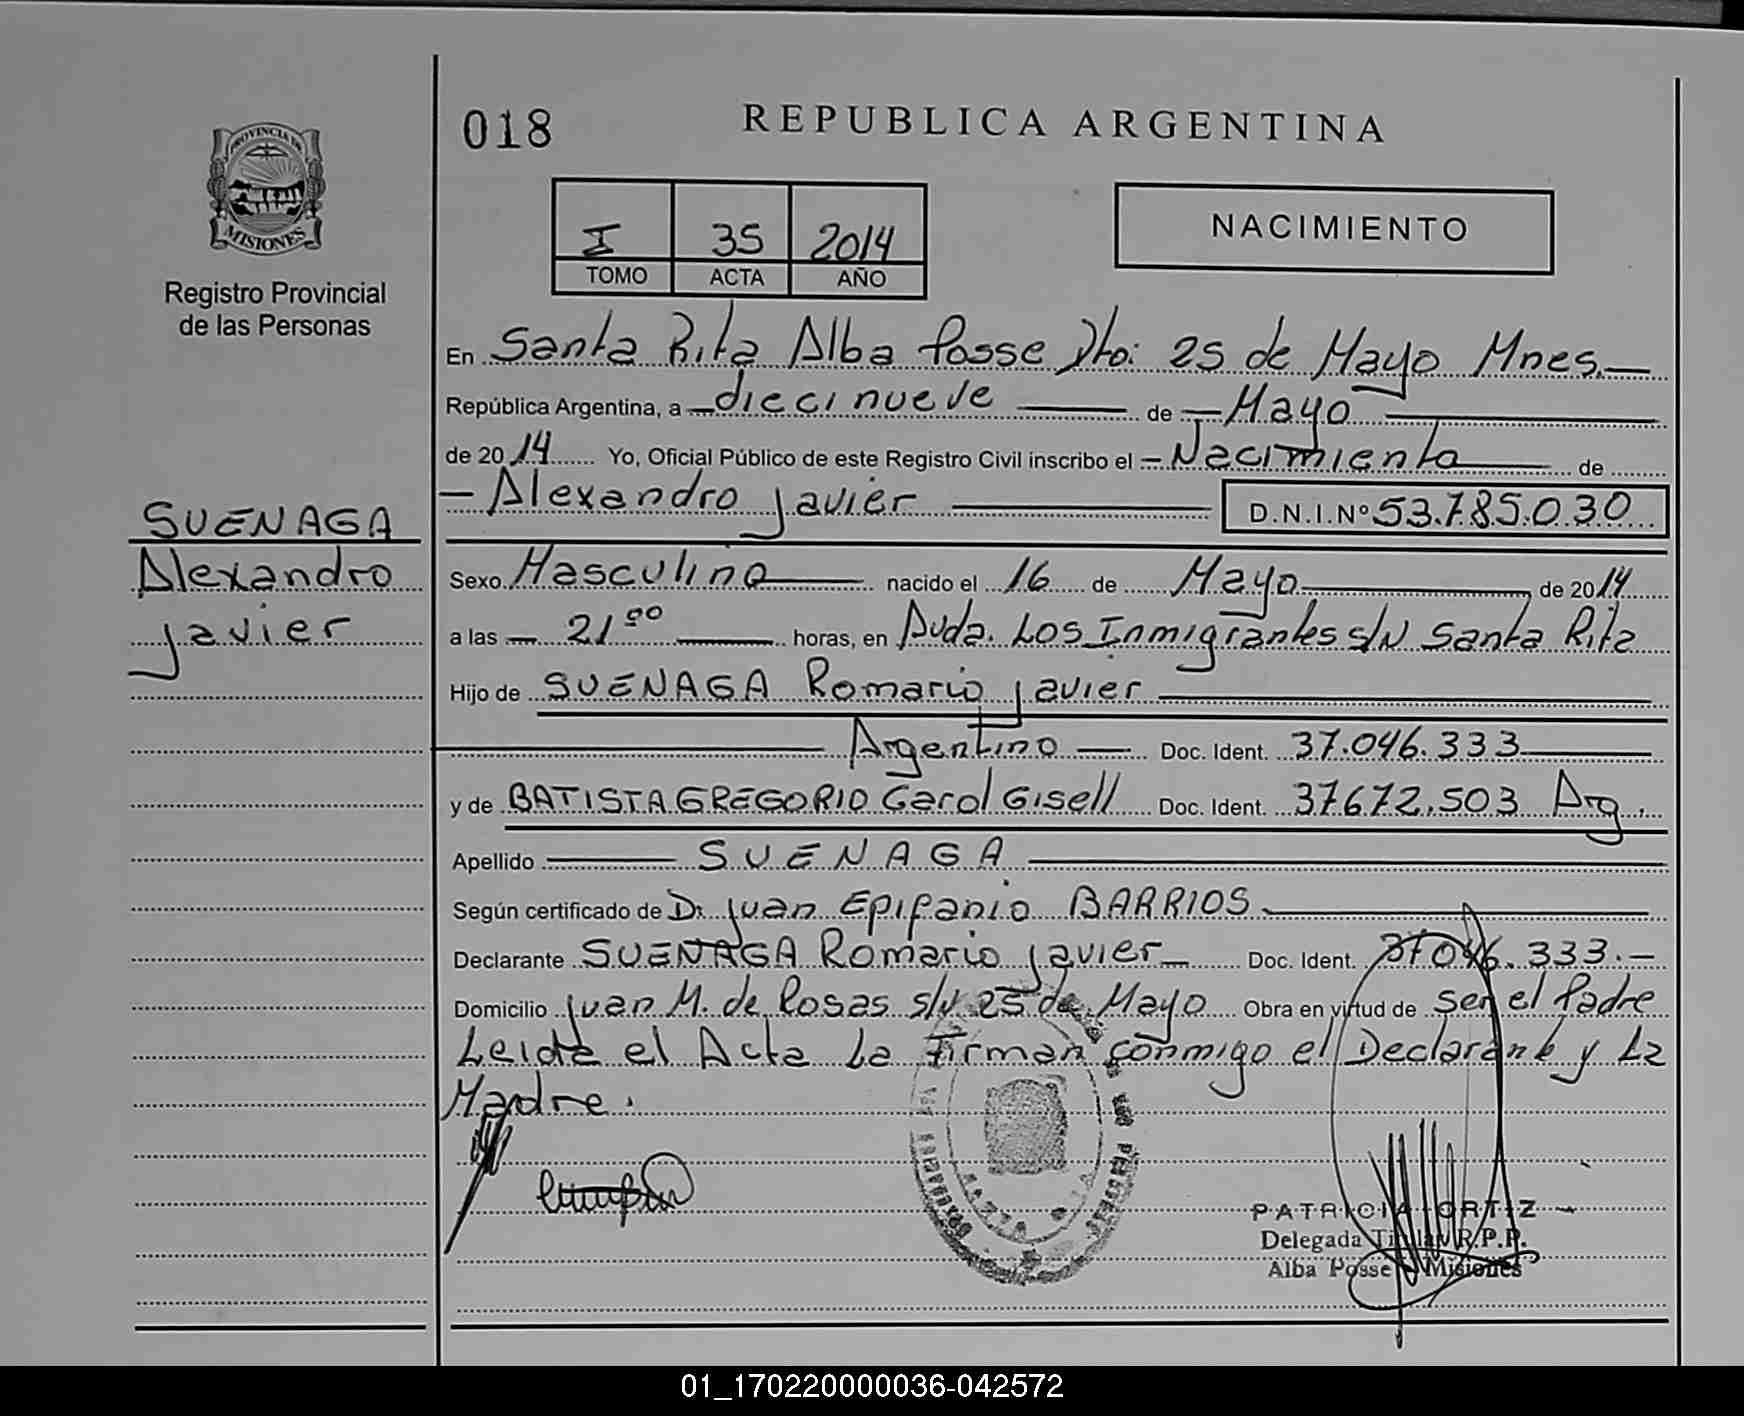 PROVINCIA DE
MISIONES
Registro Provincial
de las Personas
SUENAGA
Alexandro
Javier
018
REPUBLICA ARGENTINA
I 35 2014
TOMO ACTA AÑO
NACIMIENTO
En Santa Rita Alba Posse Dto: 25 de Mayo Mnes.
República Argentina, a diecinueve de Mayo
de 2014 Yo, Oficial Público de este Registro Civil inscribo el Nacimiento de
Alexandro Javier D.N.I.Nº 53.785.030
Sexo Masculino nacido el 16 de Mayo de 2014
a las 21 ºº horas, en Avda. Los Inmigrantes s/N Santa Rita
Hijo de SUENAGA Romario Javier
Argentino Doc. Ident. 37.046.333
y de BATISTA GREGORIO Carol Gisell Doc. Ident. 37.672.503 Arg.
Apellido SUENAGA
Según certificado de Dr. Juan Epifanio BARRIOS
Declarante SUENAGA Romario Javier Doc. Ident. 37046.333.-
Domicilio Juan M. de Rosas s/N 25 de Mayo Obra en virtud de ser el Padre
Leida el Acta la Firman conmigo el Declarante y La
Madre.
PATRICIA ORTIZ
Delegada Titular R.P.P.
Alba Posse Misiones
01_170220000036-042572